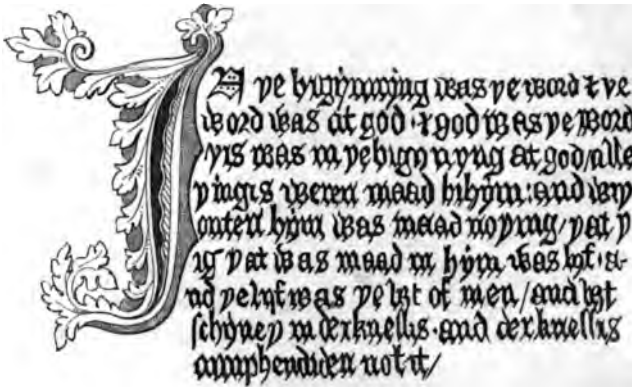 IN þe bigynnyng was þe word & þe
word was at god · & god was þe word
þis was in þe bigynnyng at god/ alle
þingis weren maad bi hym: and wiþ
outen hym was maad no þing/ þat þ
ig þat was maad in hym was lyf · a-
nd þe lyf was þe liȝt of men/ and liȝt
schyneþ in derknessis · and derknessis
comphendiden not it/